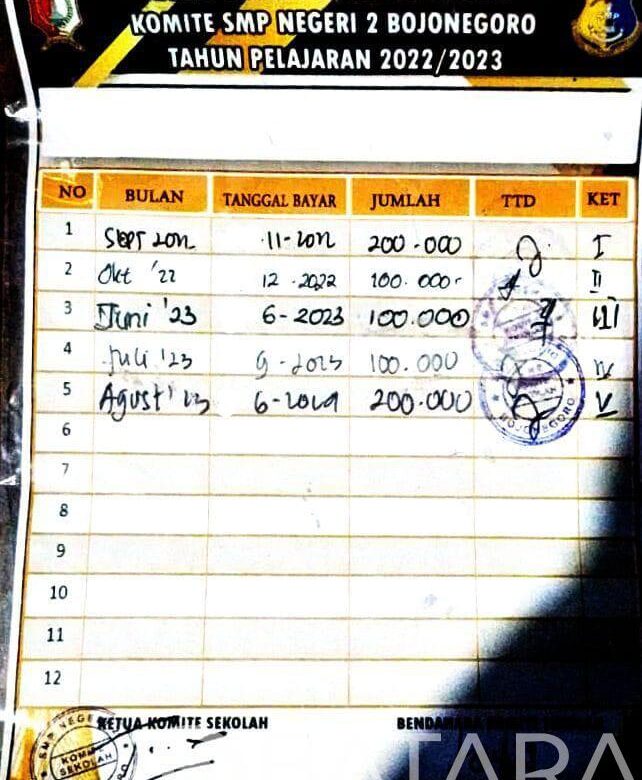 KOMITE SMP NEGERI 2 BOJONEGORO
TAHUN PELAJARAN 2022/2023
NO BULAN TANGGAL BAYAR JUMLAH TTD KET
1 Sept 2022 11-2022 200.000 I
2 Okt '22 12.2022 100.000 II
3 Juni '23 6-2023 100.000 III
4 Juli '23 9-2023 100.000 IV
5 Agust '23 6-2024 200.000 V
6
7
8
9
10
11
12
KETUA KOMITE SEKOLAH BENDAHARA KOMITE SEKOLAH
SMP NEGE
KOMITE
SEKOLAH
BOJONEGORO
TARA